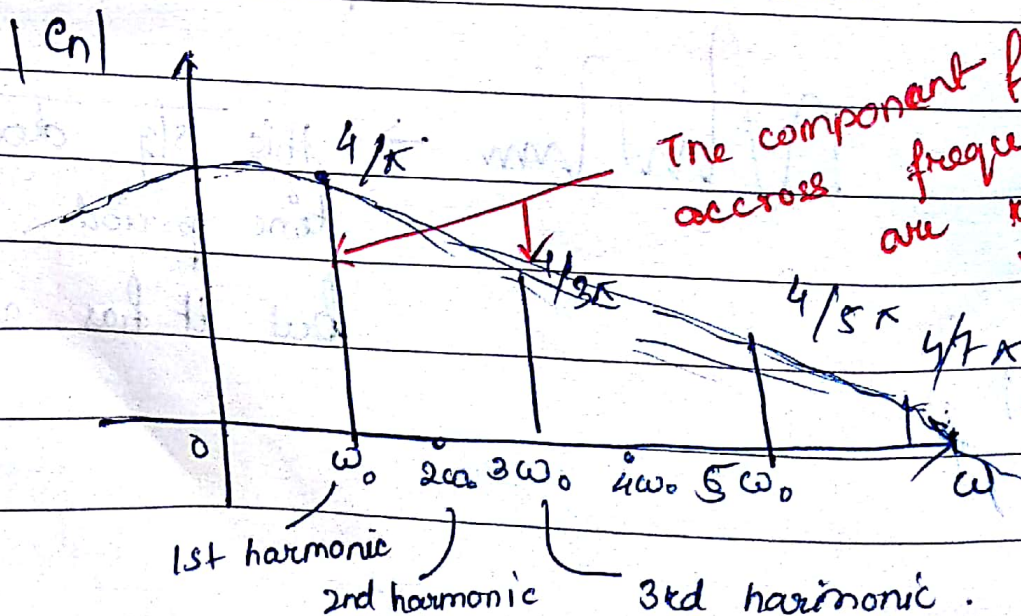 |Cn|
4/π
The component f
accross frequ
are
4/3π
4/5π
4/7π
0
ω₀ 2ω₀ 3ω₀ 4ω₀ 5ω₀
ω
1st harmonic
2nd harmonic
3rd harmonic.